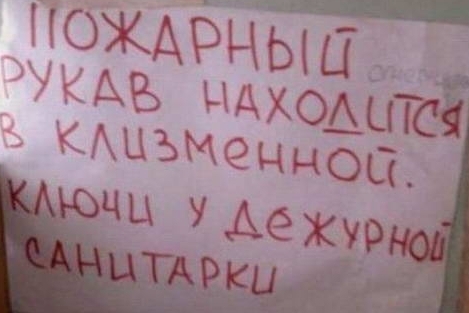 ПОЖАРНЫЙ
РУКАВ НАХОДИТСЯ
В КЛИЗМЕННОЙ.
КЛЮЧИ У ДЕЖУРНОЙ
САНИТАРКИ